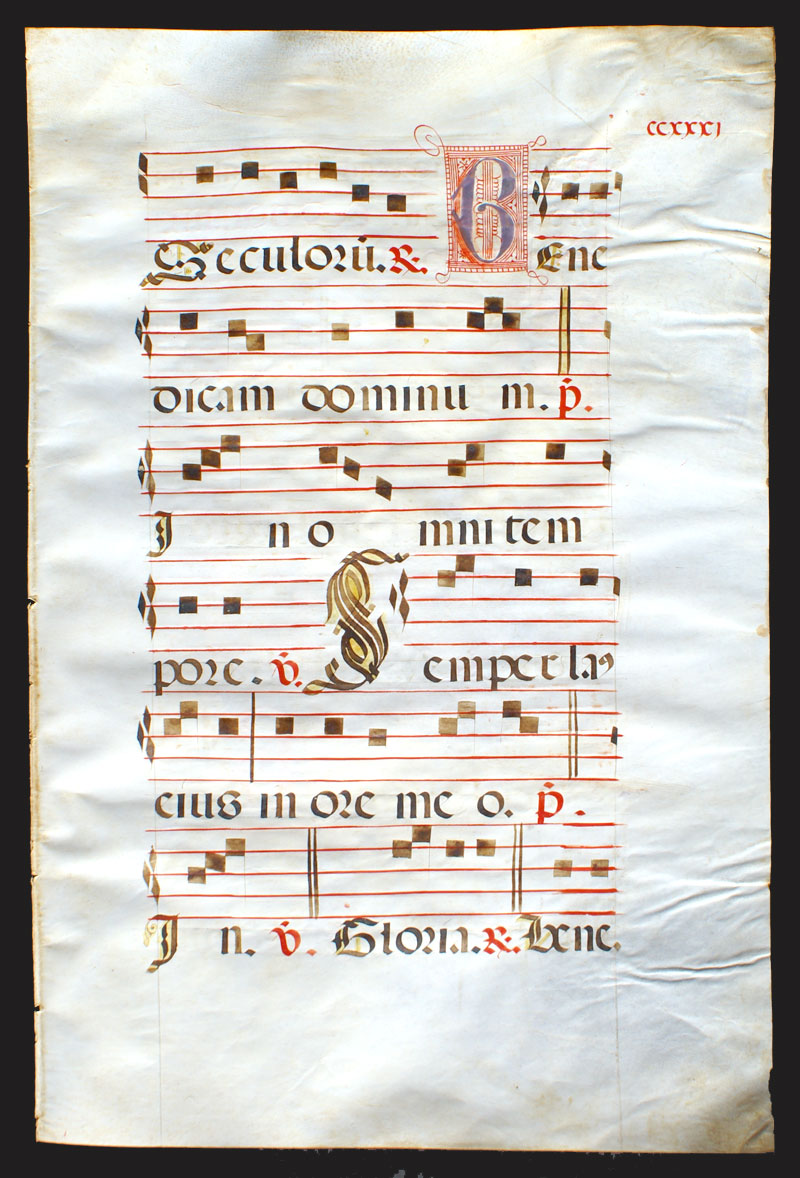 ccxxxi
Seculorū. ℟. BEne
dicam dominu m. p̄.
I n o mni tem
pore. ℣. Semper laꝰ
eius in ore me o. p̄.
I n. ℣. Gloria. ℟. Bene.